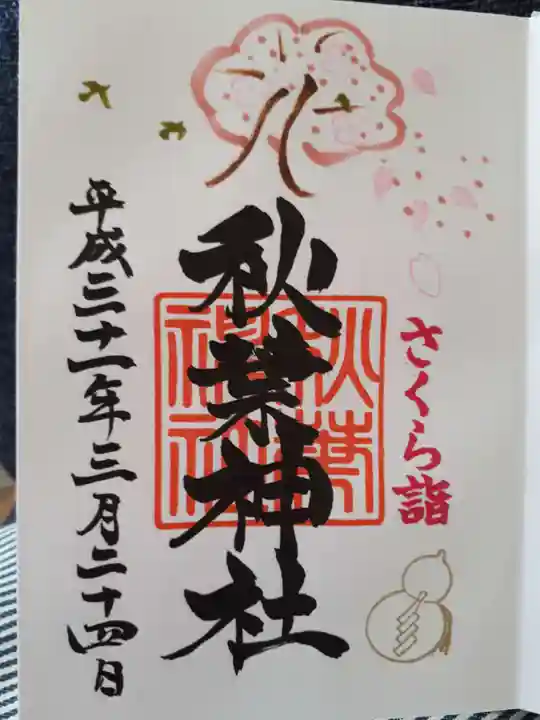 さくら詣
秋葉神社
秋葉
神社
平成三十一年三月二十四日